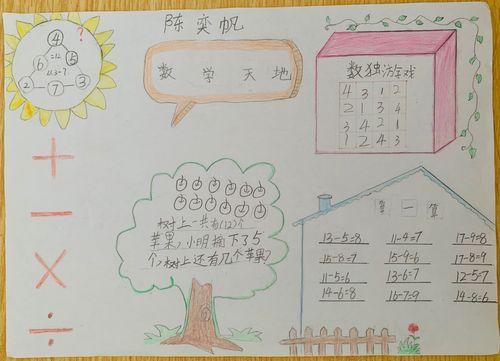 陈奕帆
数学天地
?
4
=12
6
5
2
7
3
数独游戏
4 3 1 2
2 1 3 4
3 4 2 1
1 2 4 3
+
-
×
÷
树上一共有(12)个
苹果,小明摘下了5
个,树上还有几个苹果?
算一算
13-5=8 11-4=7 17-9=8
15-8=7 15-9=6 17-8=9
11-5=6 13-6=7 12-5=7
14-6=8 16-7=9 14-8=6